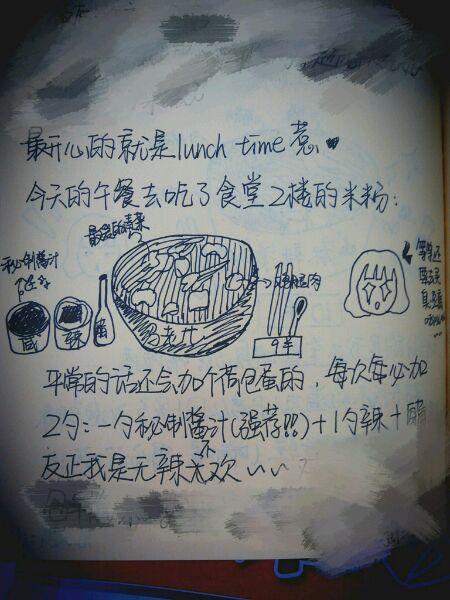 最开心的就是lunch time惹♥
今天的午餐去吃了食堂2楼的米粉:
最爱的青菜
秘制酱汁
咸
辣
醋
老坑
9羊
平常的话还会加个荷包蛋的,每次每必加
2勺:一勺秘制酱汁(强荐!!)+1勺辣+醋
反正我是无辣不欢~~